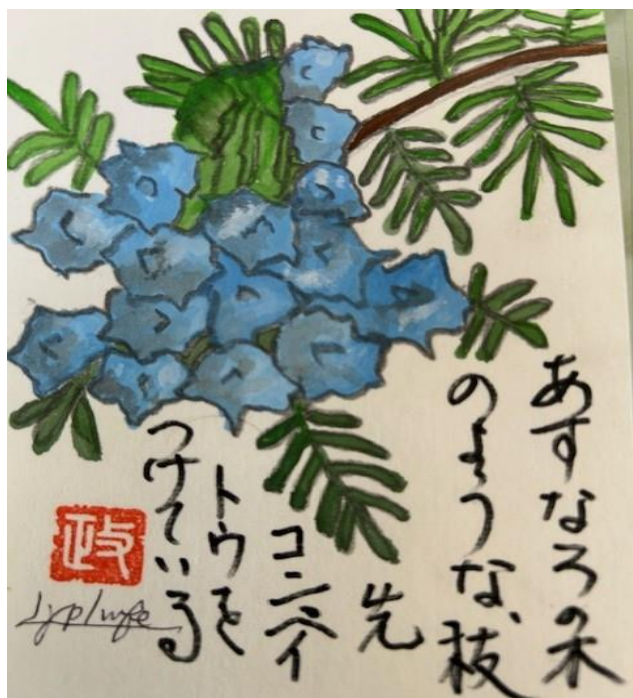 あすなろの木
のような、枝
先
コンペイ
トウを
つけている
政